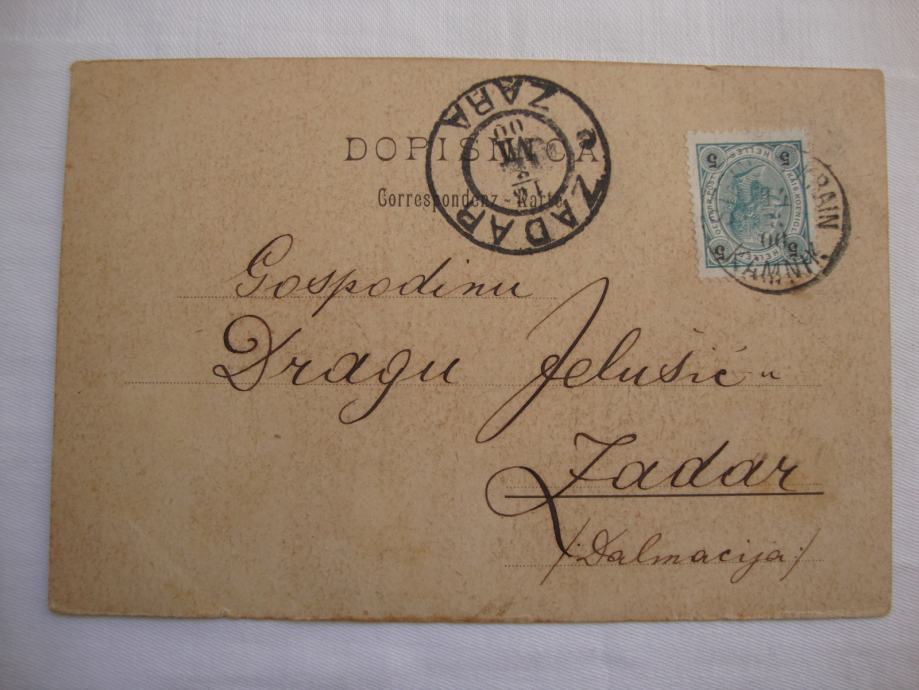 DOPISNICA
Correspondenz-Karte
ZARA
ZADAR
00
5 5
5 5
HELLER
HELLER
KRAIN
00
KAMNIK
Gospodinu
Dragu Jelušić-u
Zadar
/:Dalmacija:/